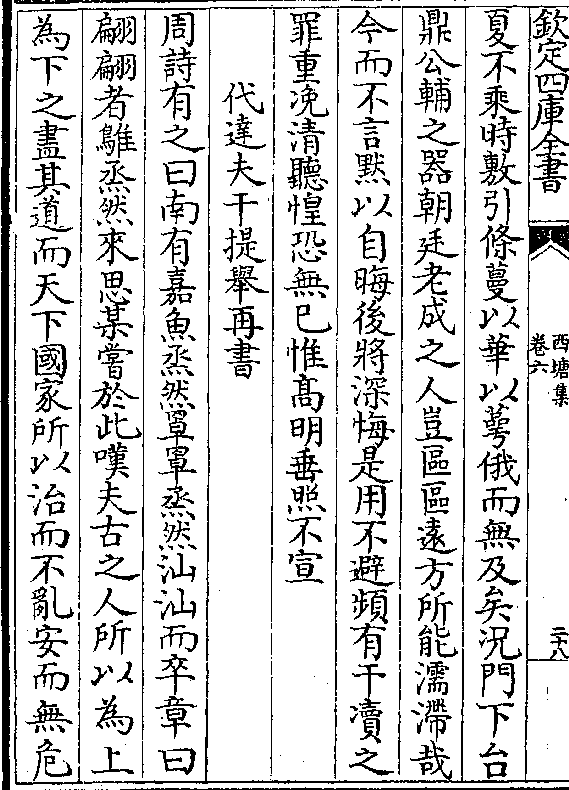 欽定四庫全書
西塘集
卷六
二十八
夏不乘時敷引條蔓以華以萼俄而無及矣況門下台
鼎公輔之器朝廷老成之人豈區區遠方所能濡滯哉
今而不言默以自晦後將深悔是用不避頻有干瀆之
罪重浼清聽惶恐無已惟髙明垂照不宣
代達夫干提舉再書
周詩有之曰南有嘉魚烝然罩罩烝然汕汕而卒章曰
翩翩者鵻烝然來思某嘗於此嘆夫古之人所以為上
為下之盡其道而天下國家所以治而不亂安而無危